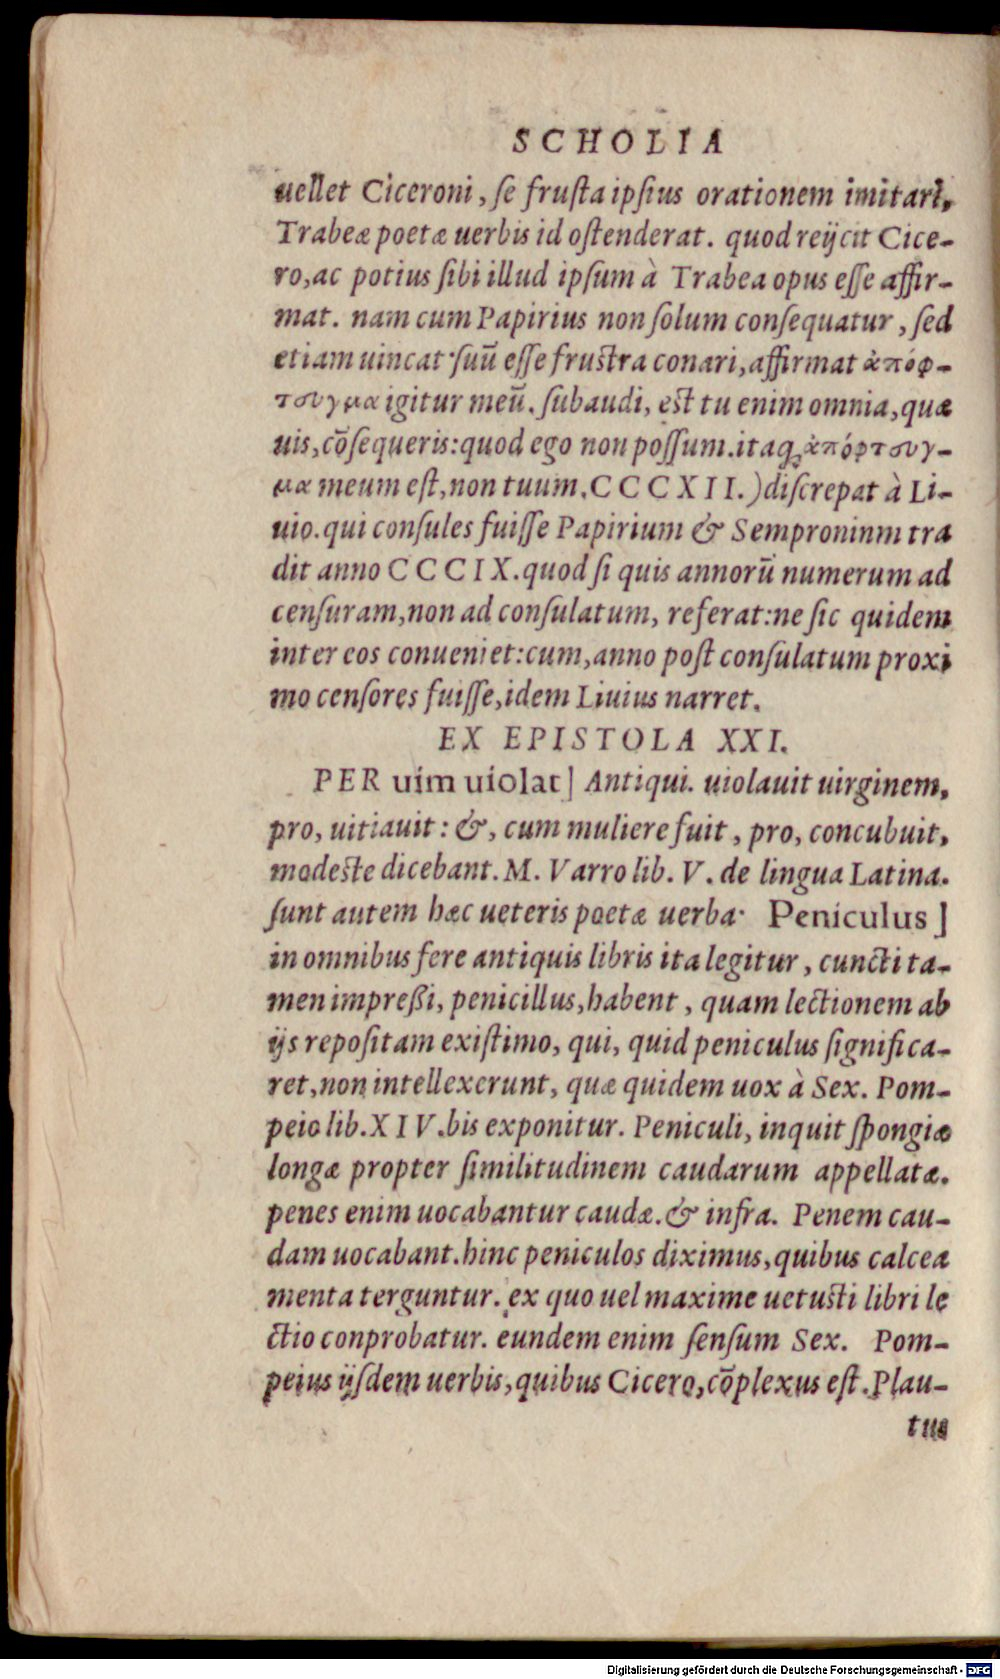 SCHOLIA
uellet Ciceroni, se frusta ipsius orationem imitari,
Trabeæ poetæ uerbis id ostenderat. quod reijcit Cice-
ro, ac potius sibi illud ipsum à Trabea opus esse affir-
mat. nam cum Papirius non solum consequatur, sed
etiam uincat· suū esse frustra conari, affirmat ἀπόφ-
τσυγμα igitur meū. subaudi, est tu enim omnia, quæ
uis, cōsequeris: quod ego non possum. itaq; ἀπόρτσυγ-
μα meum est, non tuum. CCCXII.) discrepat à Li-
uio. qui consules fuisse Papirium & Semproninm tra
dit anno CCCIX. quod si quis annorū numerum ad
censuram, non ad consulatum, referat: ne sic quidem
inter eos conueniet: cum, anno post consulatum proxi
mo censores fuisse, idem Liuius narret.
EX EPISTOLA XXI.
PER uim uiolat] Antiqui. uiolauit uirginem,
pro, uitiauit: &, cum muliere fuit, pro, concubuit,
modeste dicebant. M. Varro lib. V. de lingua Latina.
sunt autem hæc ueteris poetæ uerba· Peniculus]
in omnibus fere antiquis libris ita legitur, cuncti ta-
men impreßi, penicillus, habent, quam lectionem ab
ijs repositam existimo, qui, quid peniculus significa-
ret, non intellexerunt, quæ quidem uox à Sex. Pom-
peio lib. XIV. bis exponitur. Peniculi, inquit spongiæ
longæ propter similitudinem caudarum appellatæ.
penes enim uocabantur caudæ. & infra. Penem cau-
dam uocabant. hinc peniculos diximus, quibus calcea
menta terguntur. ex quo uel maxime uetusti libri le
ctio conprobatur. eundem enim sensum Sex. Pom-
peius ijsdem uerbis, quibus Cicero, cōplexus est. Plau-
tus
Digitalisierung gefördert durch die Deutsche Forschungsgemeinschaft - DFG